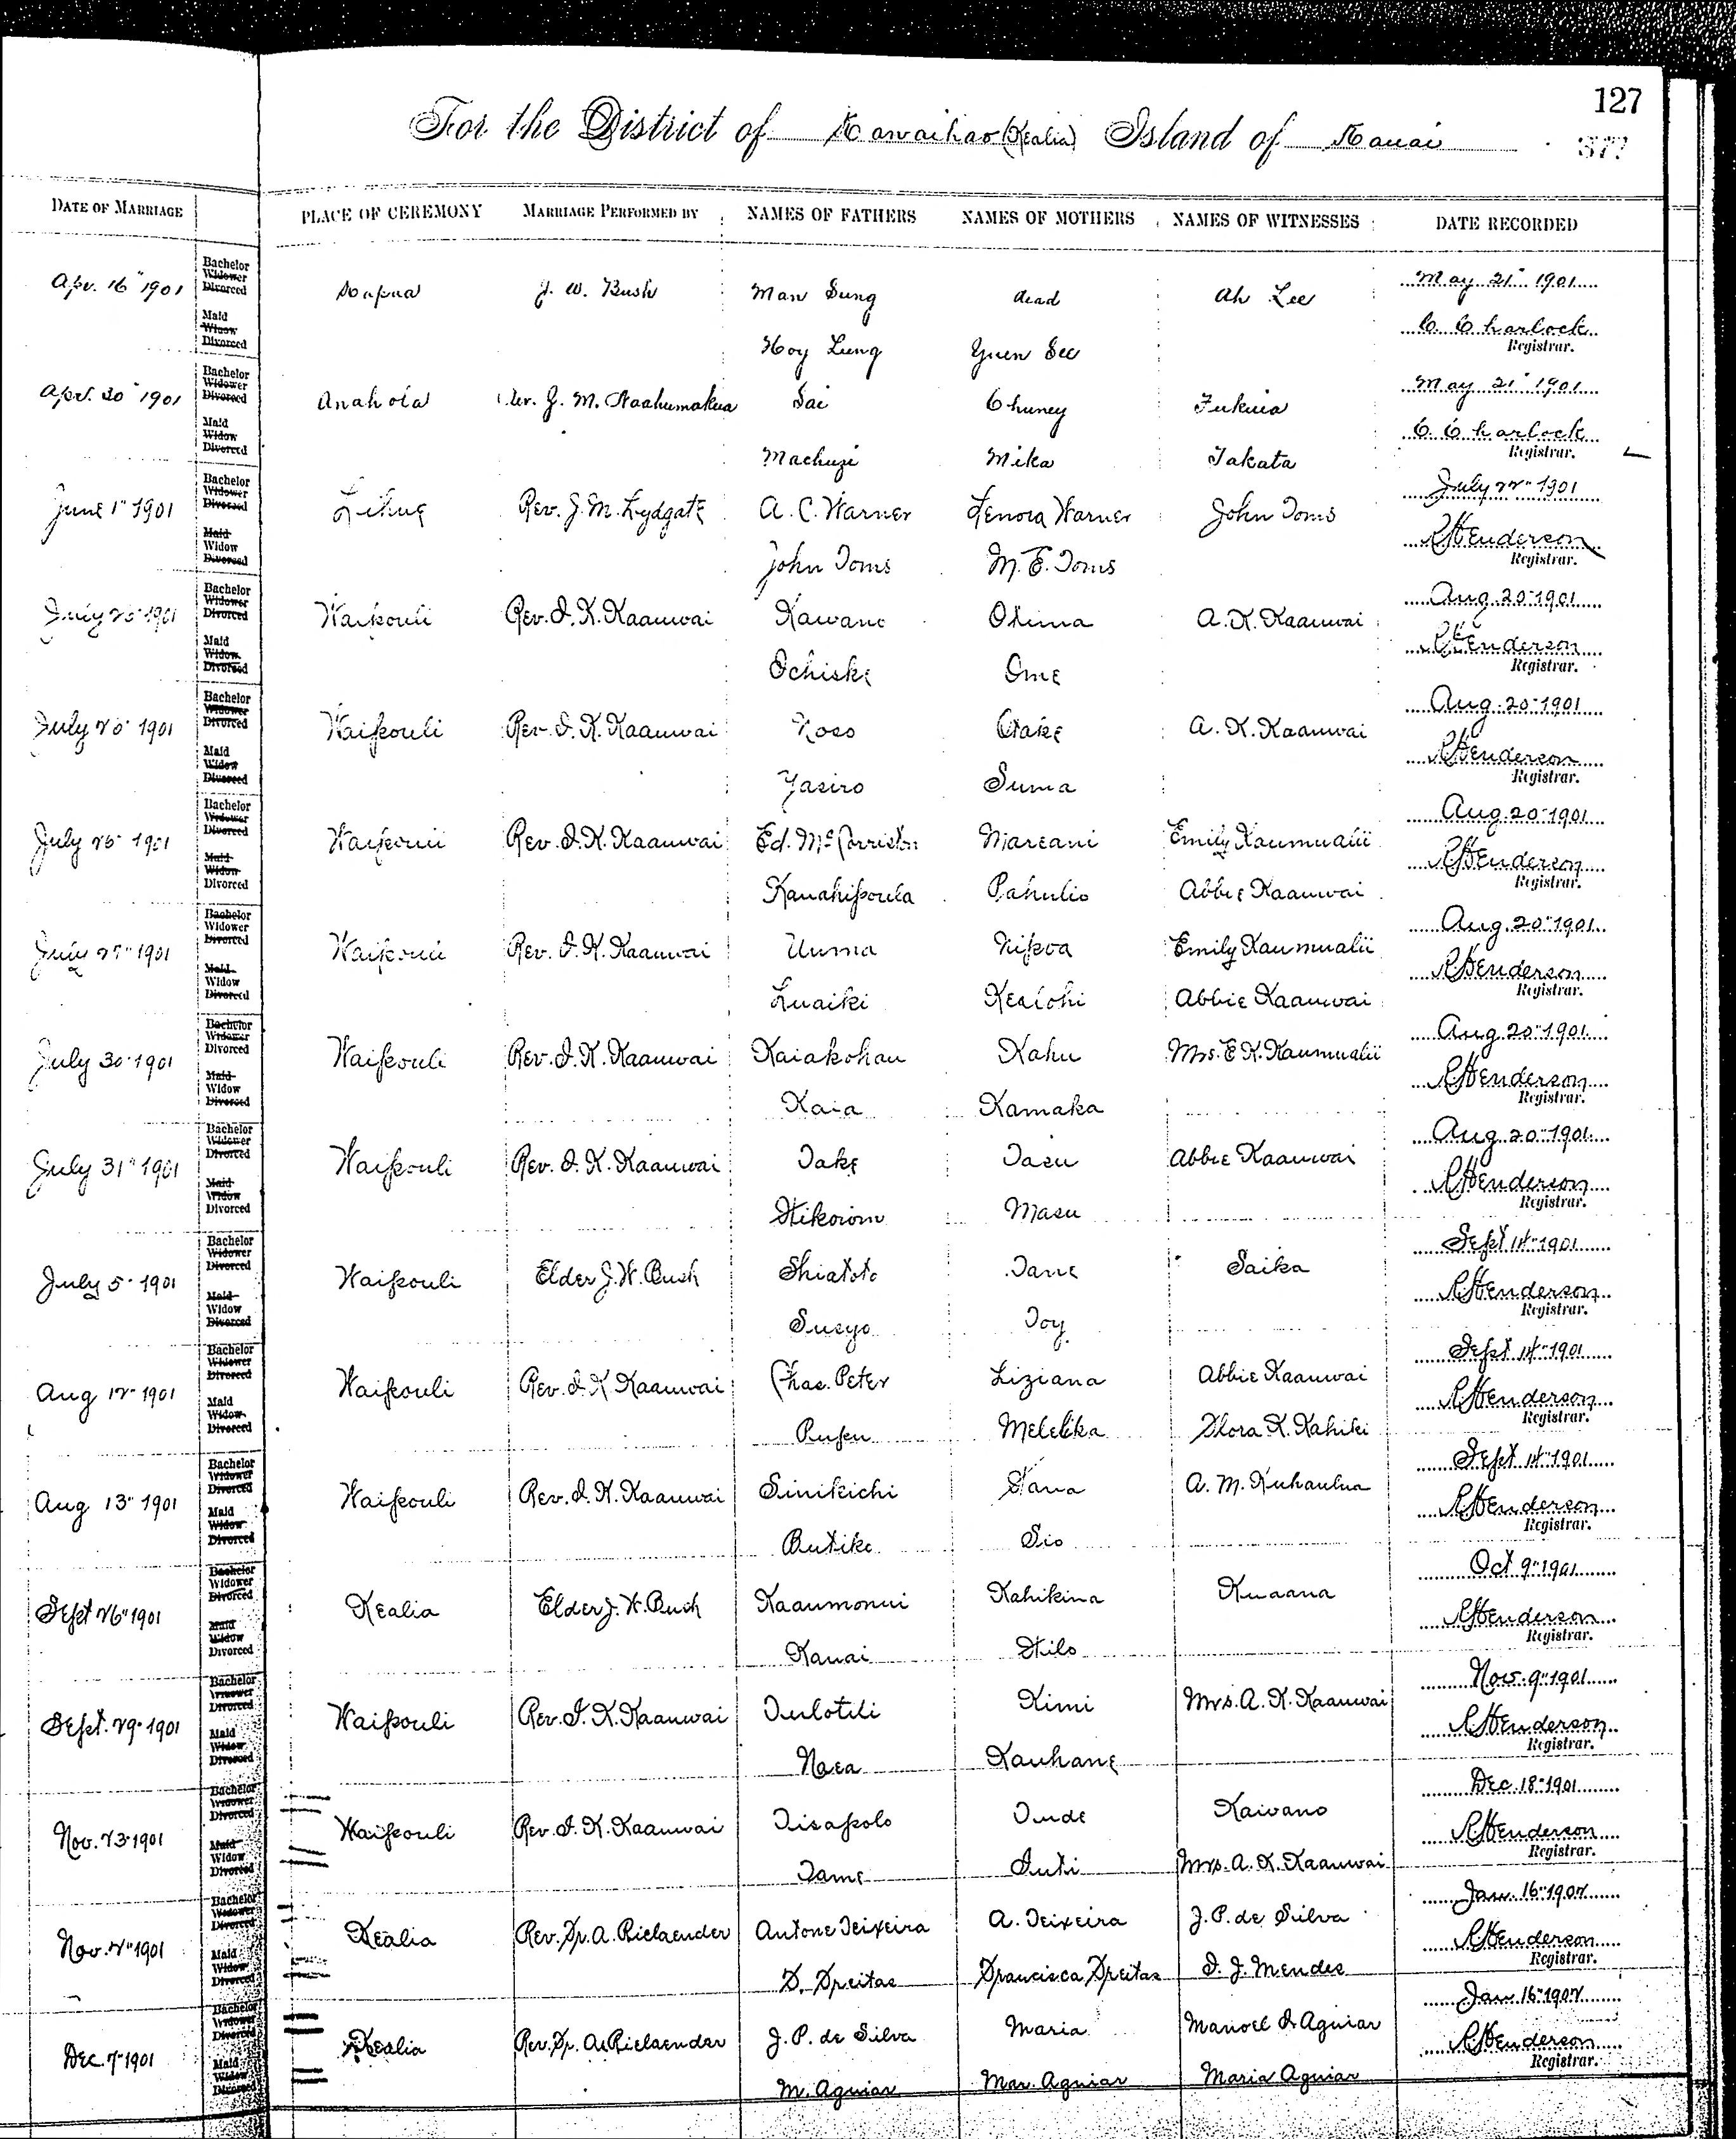 127
For the District of Kawaihao (Kealia) Island of Kauai
377
DATE OF MARRIAGE PLACE OF CEREMONY MARRIAGE PERFORMED BY NAMES OF FATHERS NAMES OF MOTHERS NAMES OF WITNESSES DATE RECORDED
Apr. 16" 1901 Bachelor Widower Divorced Kapaa J. W. Bush Man Sung dead Ah Lee May 21" 1901
Maid Widow Divorced Hoy Lung Yuen See C. Charlock Registrar.
Apr. 30" 1901 Bachelor Widower Divorced Anahola Rev. J. M. Naahumakua Sai Chuney May 21" 1901
Maid Widow Divorced Machuzi Mika Takata C. Charlock Registrar.
June 1" 1901 Bachelor Widower Divorced Lihue Rev. J. M. Lydgate A. C. Warner Lenora Warner John Toms July 22" 1901
Maid Widow Divorced John Toms M. E. Toms R Henderson Registrar.
July 20" 1901 Bachelor Widower Divorced Waipouli Rev. I. K. Kaauwai Kawano A. K. Kaauwai Aug. 20" 1901
Maid Widow Divorced Ochiske Ome R Henderson Registrar.
July 20" 1901 Bachelor Widower Divorced Waipouli Rev. I. K. Kaauwai Noso Otake A. K. Kaauwai Aug. 20" 1901
Maid Widow Divorced Yasiro Suma R Henderson Registrar.
July 25" 1901 Bachelor Widower Divorced Waipouli Rev. I. K. Kaauwai Ed. McCorriston Mareani Emily Kaumualii Aug. 20" 1901
Maid Widow Divorced Kanahipoula Pahulio Abbie Kaauwai R Henderson Registrar.
July 27" 1901 Bachelor Widower Divorced Waipouli Rev. I. K. Kaauwai Uuma Nipoa Emily Kaumualii Aug. 20" 1901
Maid Widow Divorced Luaiki Kealohi Abbie Kaauwai R Henderson Registrar.
July 30" 1901 Bachelor Widower Divorced Waipouli Rev. I. K. Kaauwai Kaiakohau Kahu Mrs. E. K. Kaumualii Aug. 20" 1901
Maid Widow Divorced Kaia Kamaka R Henderson Registrar.
July 31" 1901 Bachelor Widower Divorced Waipouli Rev. I. K. Kaauwai Take Tasu Abbie Kaauwai Aug. 20" 1901
Maid Widow Divorced Masu R Henderson Registrar.
July 5" 1901 Bachelor Widower Divorced Waipouli Elder J. W. Bush Shiatoto Tane Saika Sept 14" 1901
Maid Widow Divorced Sueyo Toy R Henderson Registrar.
Aug 12" 1901 Bachelor Widower Divorced Waipouli Rev. I. K. Kaauwai Chas. Peter Liziana Abbie Kaauwai Sept 14" 1901
Maid Widow Divorced Pupu Melelika Flora K. Kahiki R Henderson Registrar.
Aug 13" 1901 Bachelor Widower Divorced Waipouli Rev. I. K. Kaauwai Sinikichi Hana A. M. Kuhaulua Sept 14" 1901
Maid Widow Divorced Butike Sio R Henderson Registrar.
Sept 26" 1901 Bachelor Widower Divorced Kealia Elder J. W. Bush Kaaumonui Kahikina Kuaana Oct 9" 1901
Maid Widow Divorced Kauai Hilo R Henderson Registrar.
Sept. 29" 1901 Bachelor Widower Divorced Waipouli Rev. I. K. Kaauwai Kimi Mrs. A. K. Kaauwai Nov. 9" 1901
Maid Widow Divorced Naea Kauhane R Henderson Registrar.
Nov. 23" 1901 Bachelor Widower Divorced Waipouli Rev. I. K. Kaauwai Tisapolo Tude Kawano Dec. 18" 1901
Maid Widow Divorced Tame Mrs. A. K. Kaauwai R Henderson Registrar.
Nov. 2" 1901 Bachelor Widower Divorced Kealia Rev. Fr. A. Rielaender Antone Teixeira A. Teixeira J. P. de Silva Jan. 16" 1902
Maid Widow Divorced D. Freitas Francisca Freitas I. J. Mendes R Henderson Registrar.
Dec 7" 1901 Bachelor Widower Divorced Kealia Rev. Fr. A. Rielaender J. P. de Silva Maria Manoel D Aguiar Jan. 16" 1902
Maid Widow Divorced M. Aguiar Mar. Aguiar Maria Aguiar R Henderson Registrar.